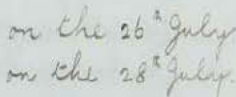 on the 26th July
on the 28th July.